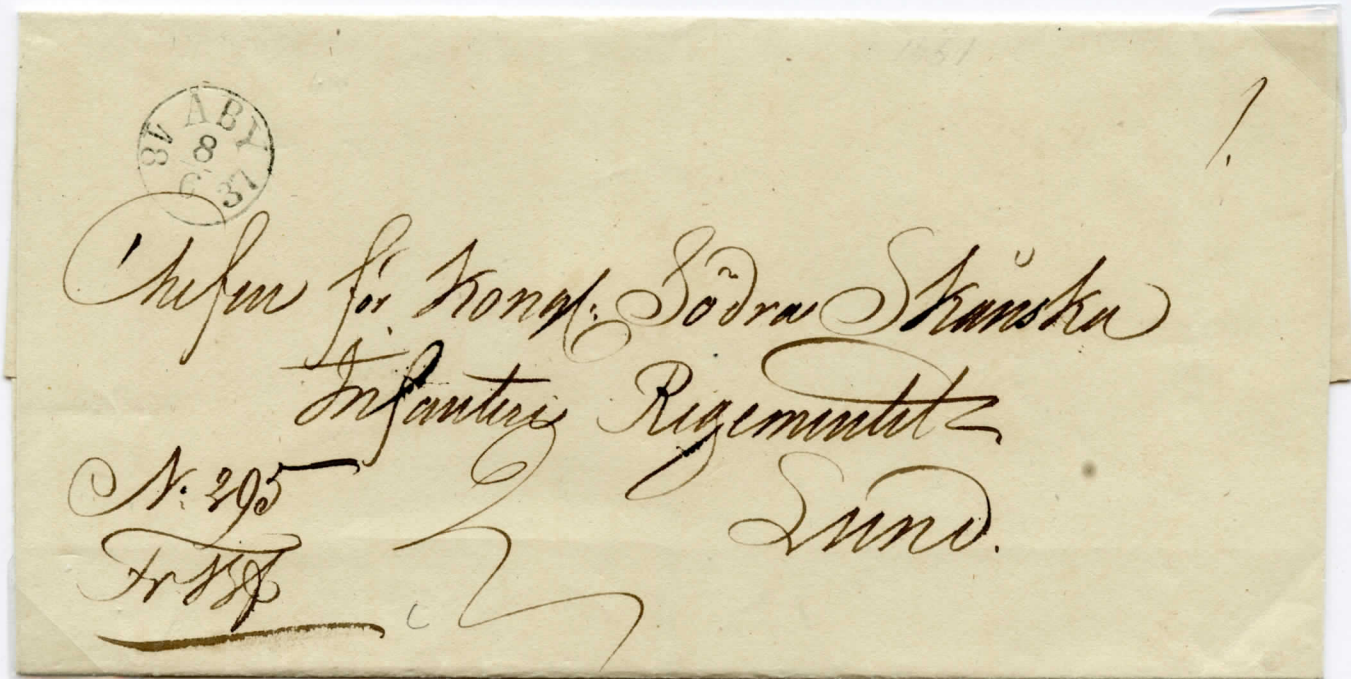 SV ÅBY
8
6
37
1.
Chefen för Kongl. Södra Skånska
Infanteri Regementet
Lund.
N: 295